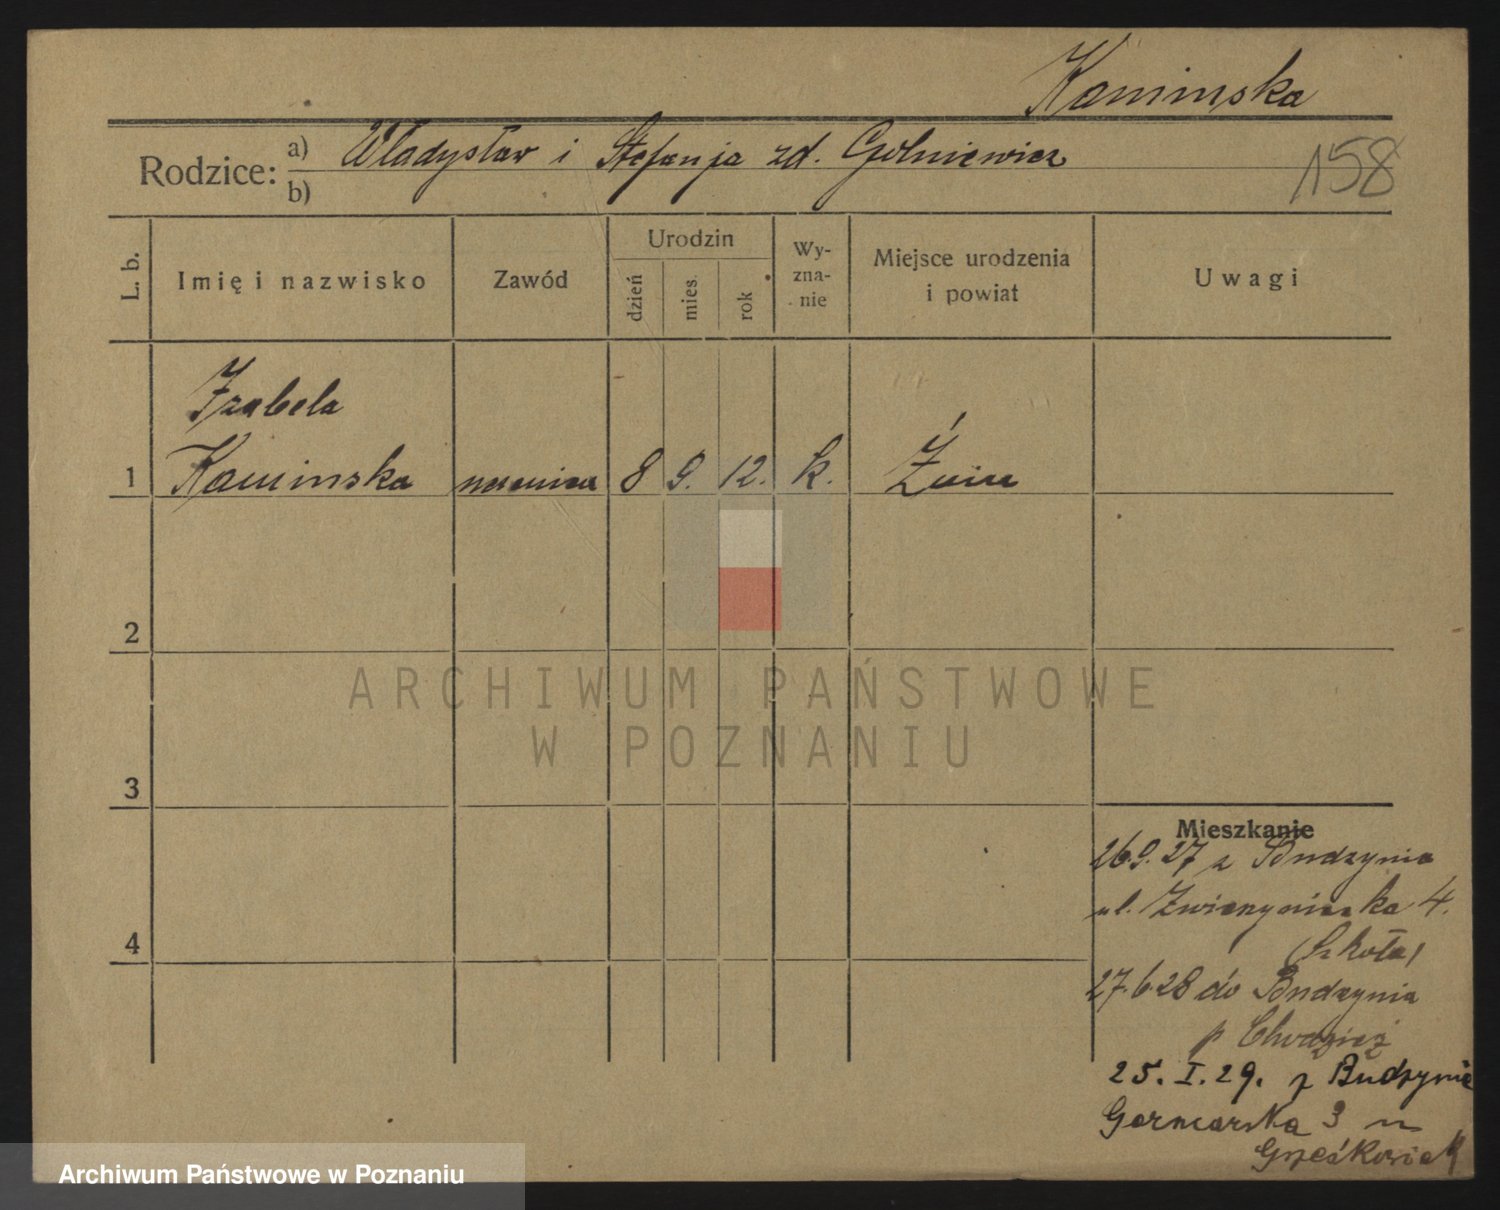 Kaminska
Rodzice: a) Władysław i Stefanja zd. Golniewicz
b)
158
L. b.
Imię i nazwisko
Zawód
Urodzin
dzień
mies.
rok
Wy-
zna-
nie
Miejsce urodzenia
i powiat
Uwagi
Izabela
1 Kaminska uczenica 8 9. 12. k. Żnin
2
3
4
ARCHIWUM PAŃSTWOWE
W POZNANIU
Mieszkanie
26.9.27 z Budzynia
ul. Zwierzyniecka 4.
(Szkoła)
27.6.28 do Budzynia
p
25. I. 29. z Budzynia
Garncarska 3
Grześkowiak
Archiwum Państwowe w Poznaniu